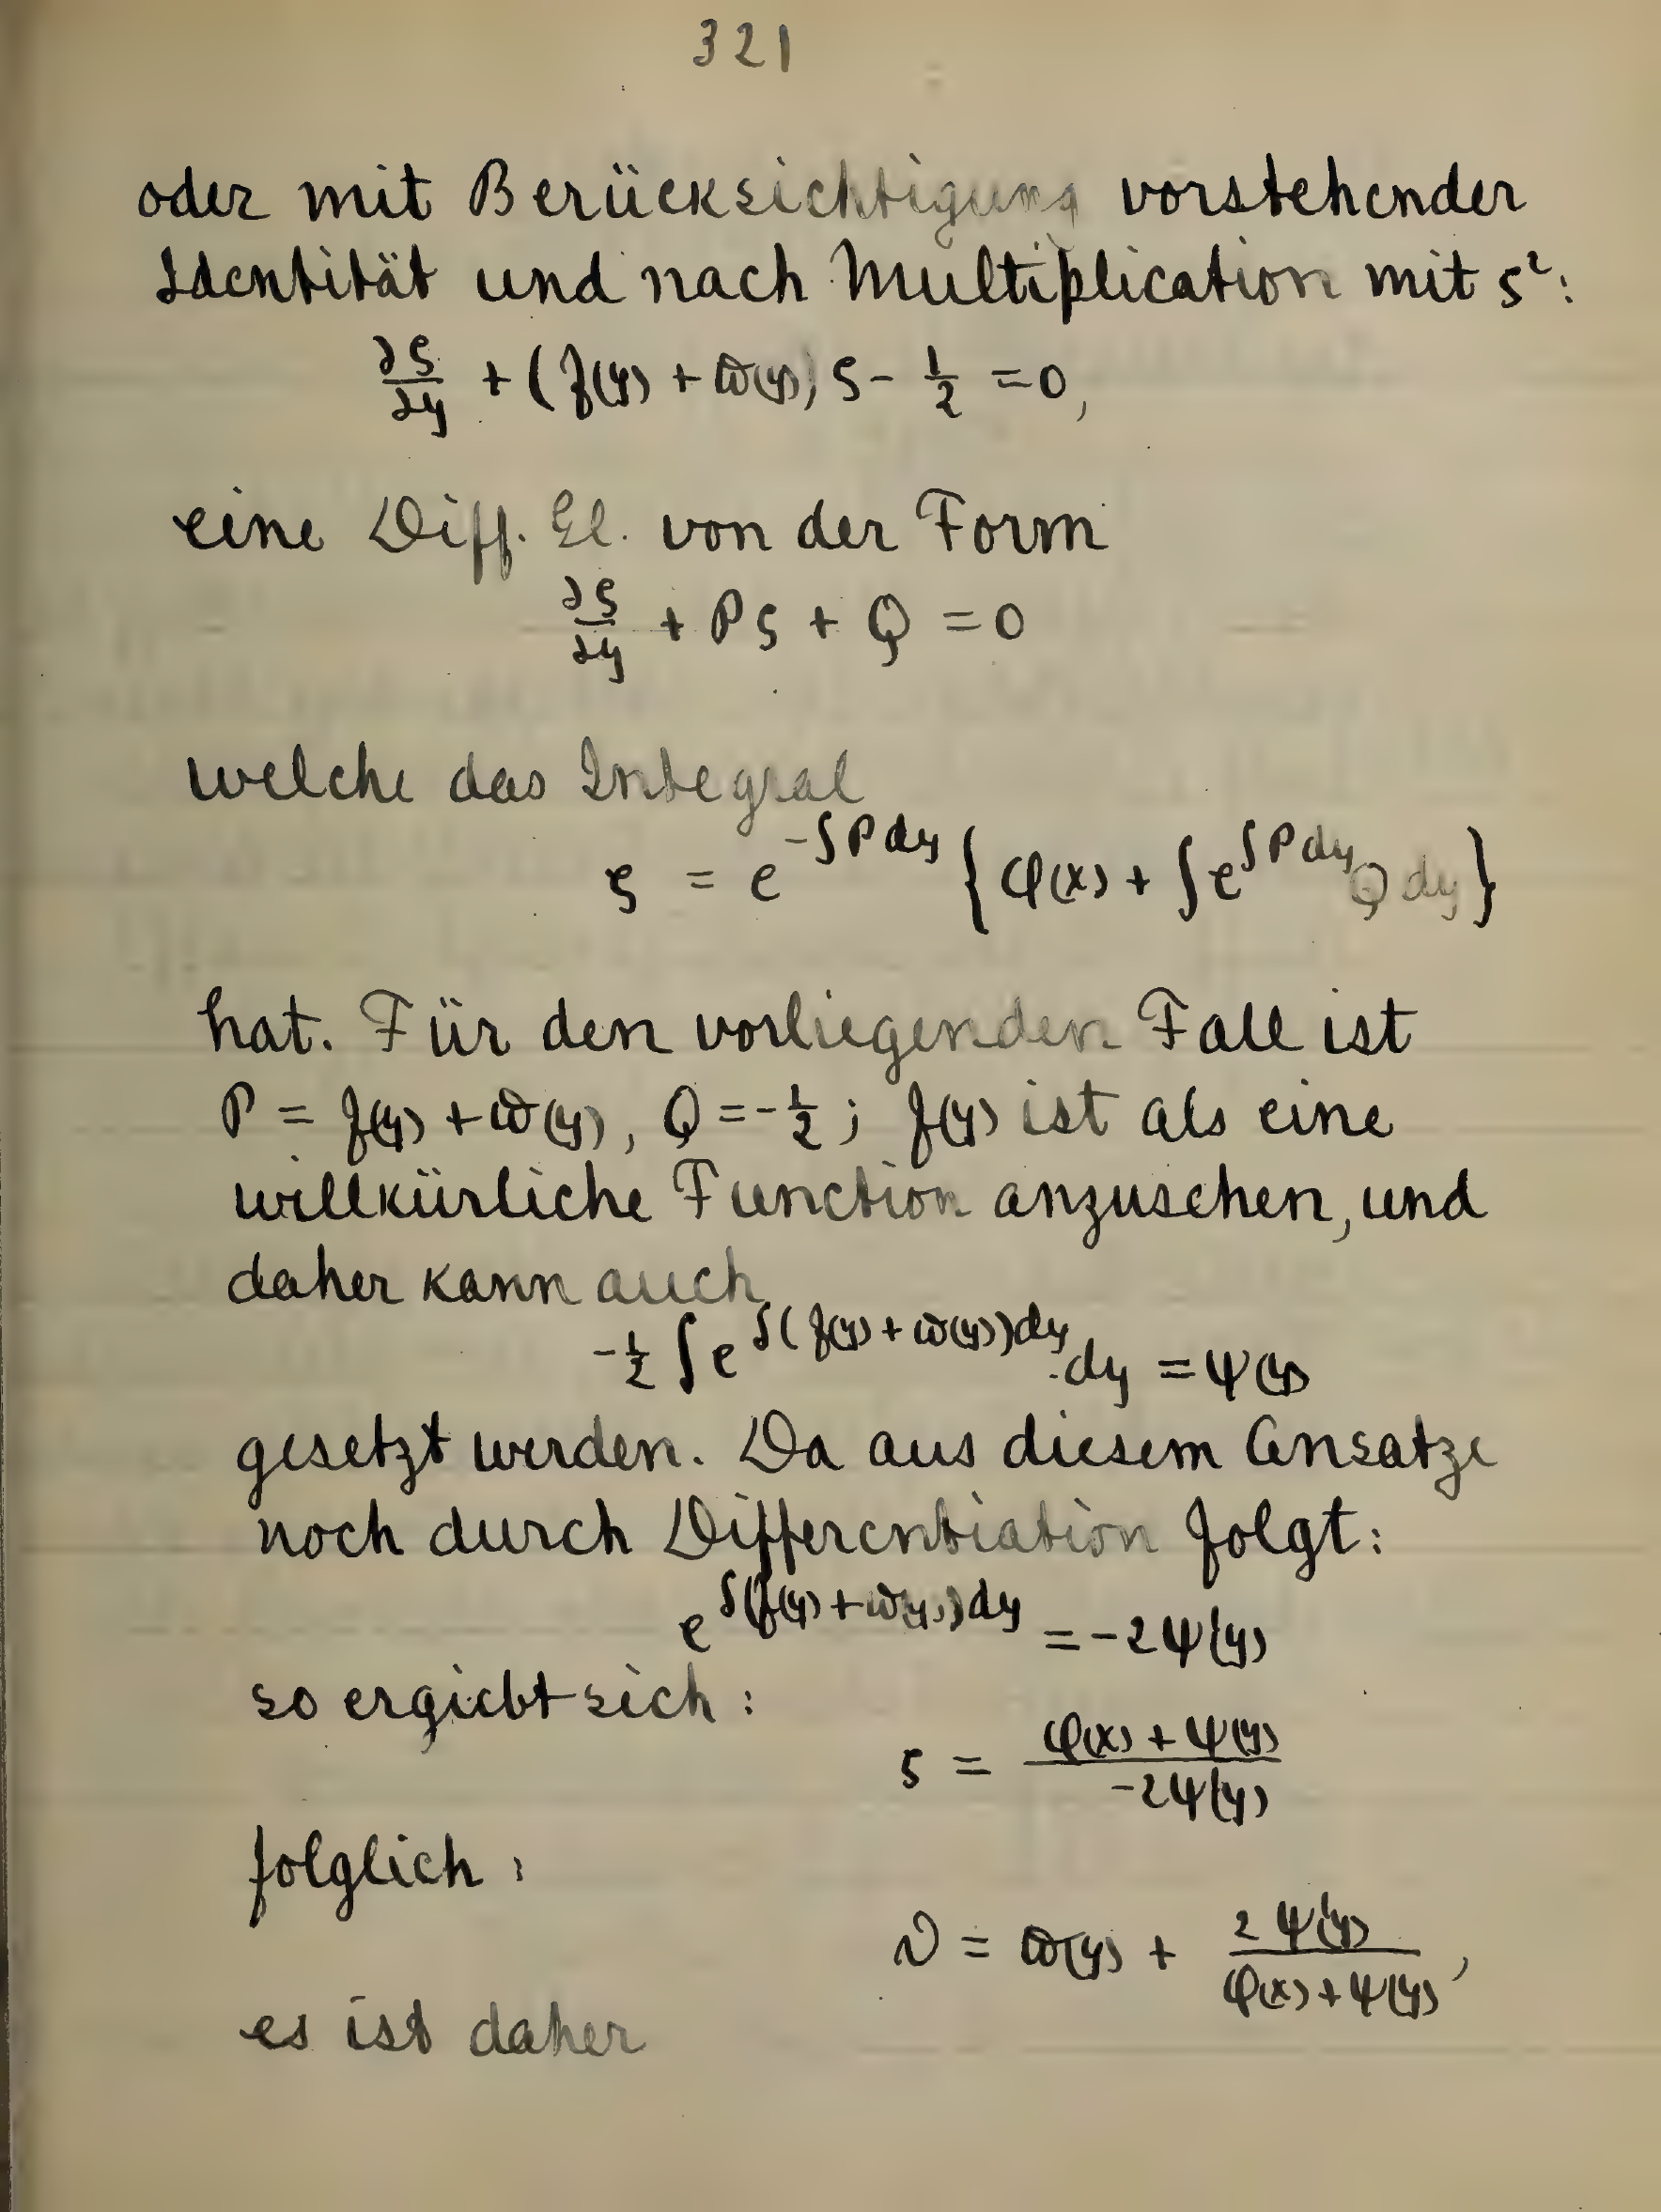 321
oder mit Berücksichtigung vorstehender
Identität und nach Multiplication mit ς²:
∂ς/∂y + (f(y) + ω(y)) ς - 1/2 = 0,
eine Diff. Gl. von der Form
∂ς/∂y + Pς + Q = 0
welche das Integral
ς = e^{-∫P dy} { φ(x) + ∫e^{∫P dy} Q dy }
hat. Für den vorliegenden Fall ist
P = f(y) + ω(y), Q = -1/2 ; f(y) ist als eine
willkürliche Function anzusehen, und
daher kann auch
-1/2 ∫e^{∫(f(y) + ω(y))dy}.dy = ψ(y)
gesetzt werden. Da aus diesem Ansatze
noch durch Differentiation folgt:
e^{∫(f(y)+ω(y))dy} = -2ψ'(y)
so ergiebt sich:
ς = (φ(x) + ψ(y))/(-2ψ'(y))
folglich:
ϑ = ω(y) + 2ψ'(y)/(φ(x)+ψ(y)),
es ist daher